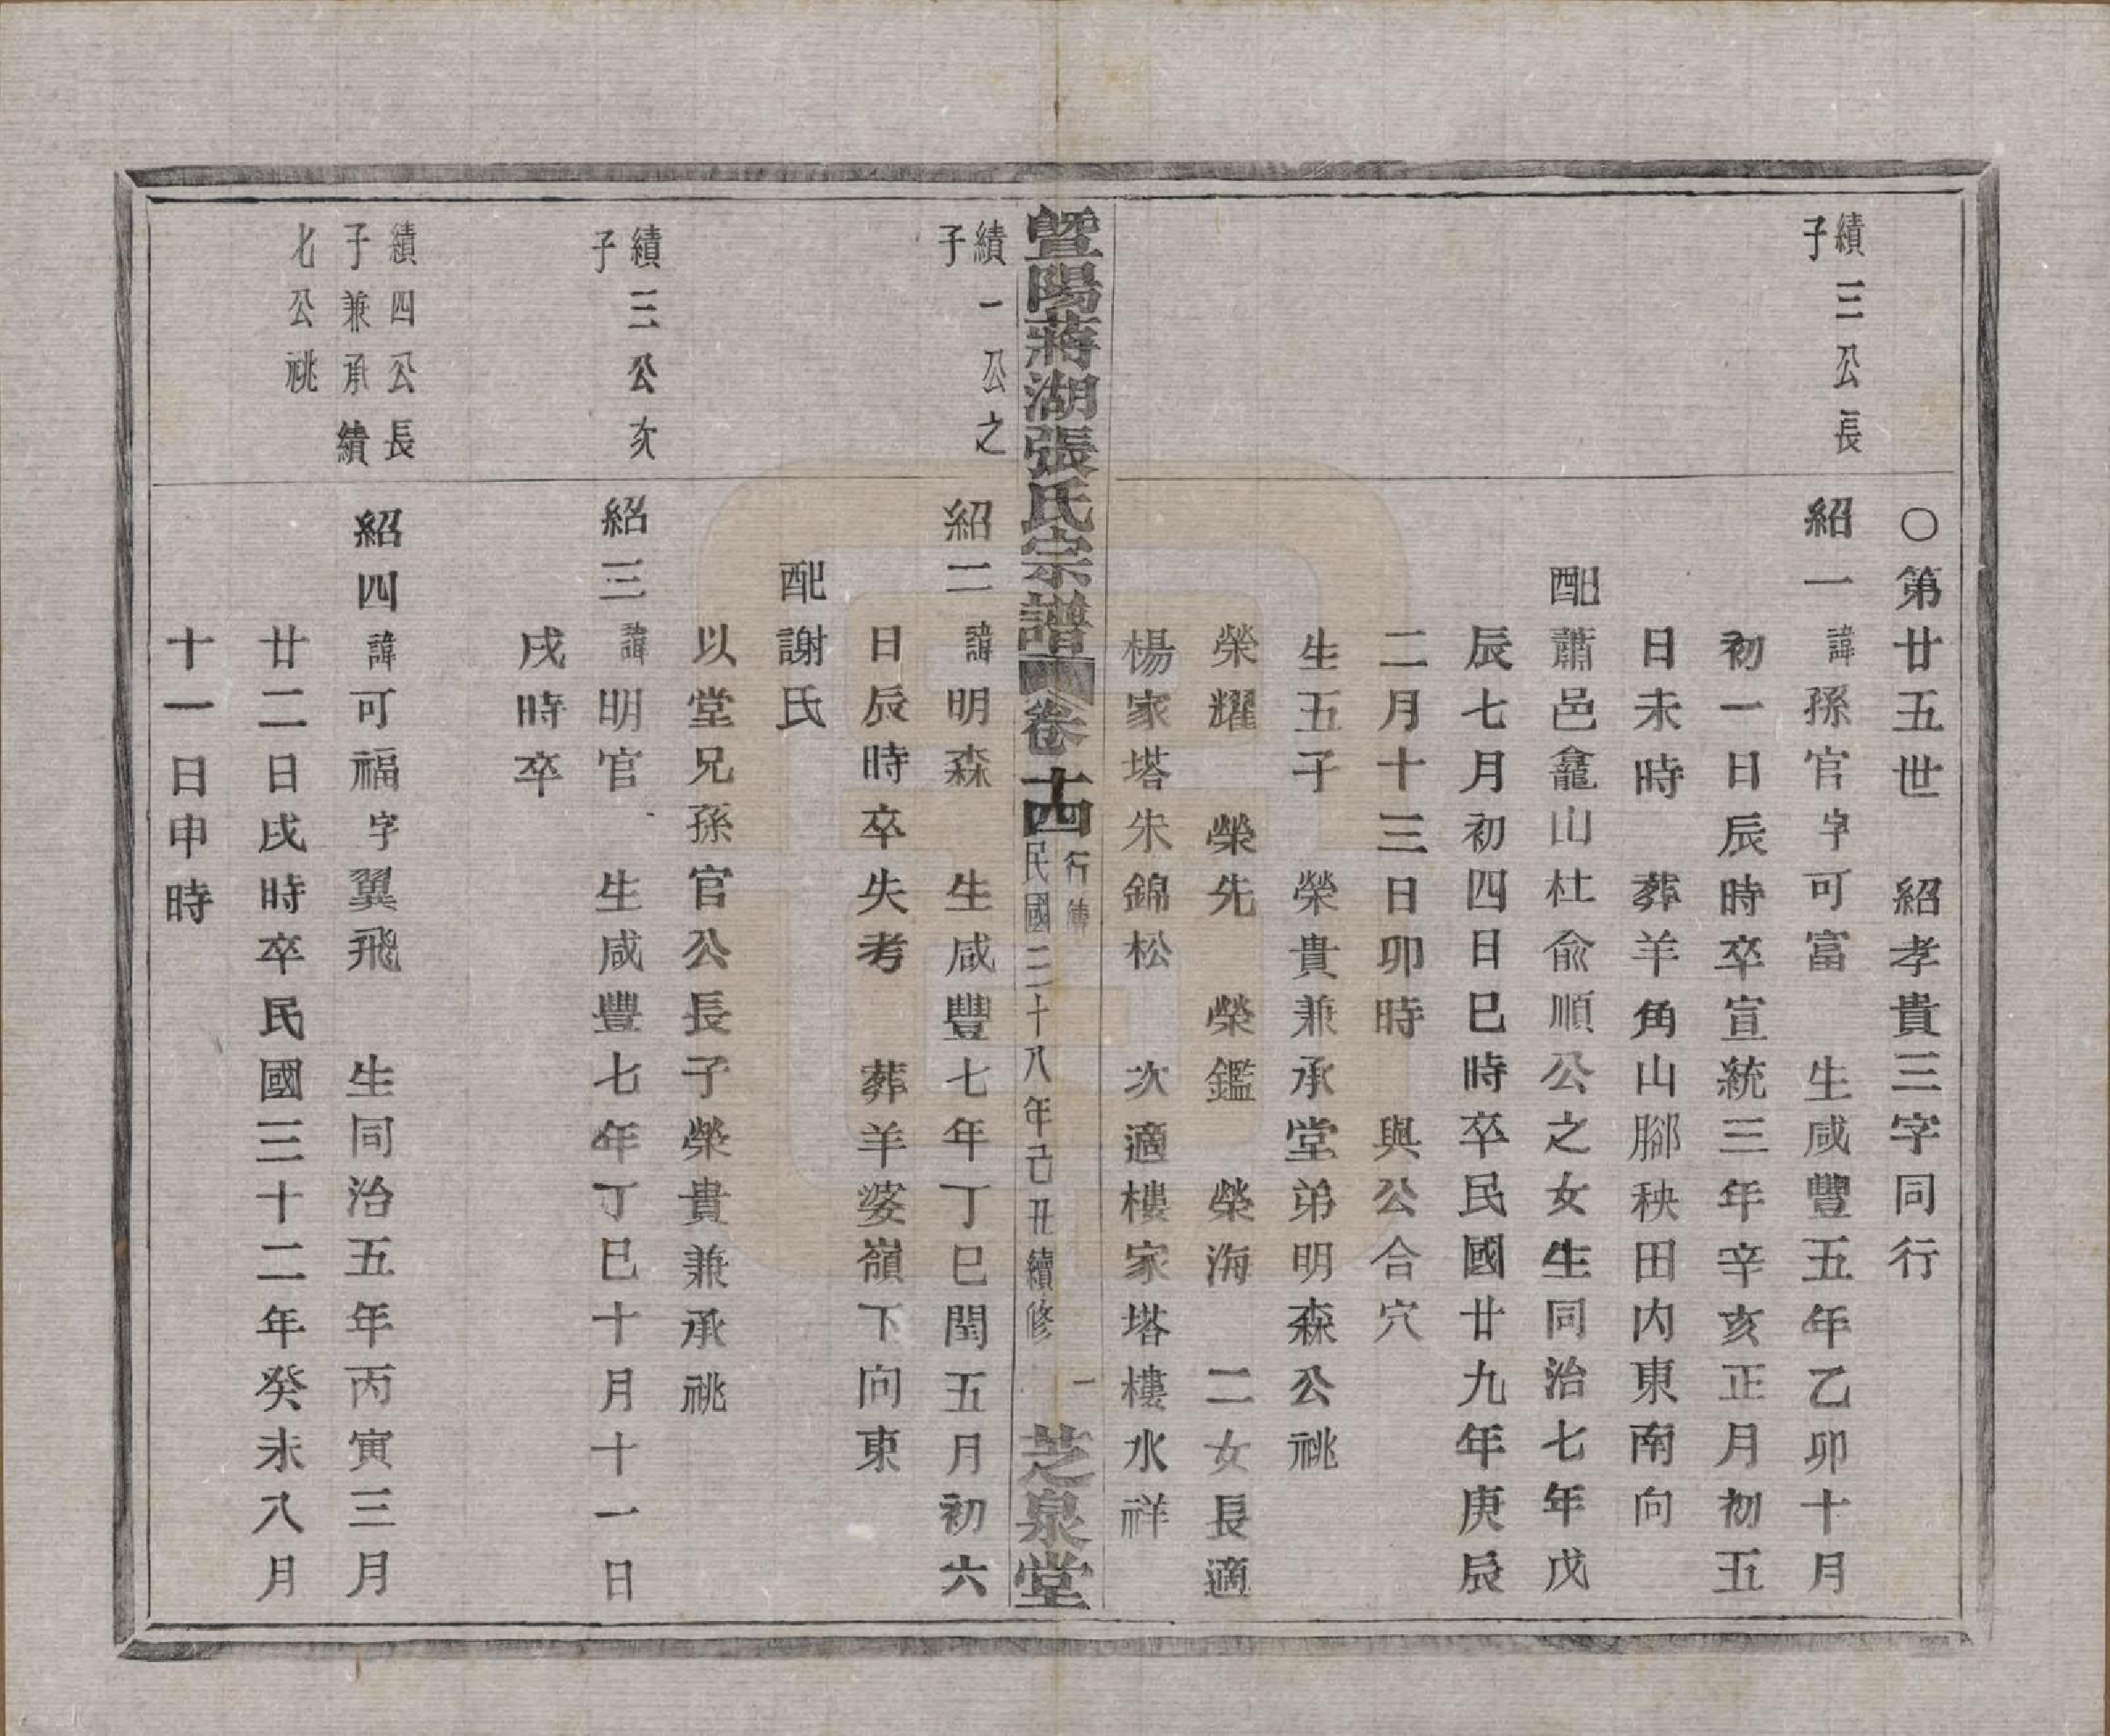 ○第廿五世　紹孝貴三字同行
績三公長
子
紹一諱孫官字可富　生咸豐五年乙卯十月
初一日辰時卒宣統三年辛亥正月初五
日未時　葬羊角山腳秧田內東南向
配蕭邑龕山杜俞順公之女生同治七年戊
辰七月初四日巳時卒民國廿九年庚辰
二月十三日卯時　與公合穴
生五子　榮貴兼承堂弟明森公祧
榮耀　榮先　榮鑑　榮海　二女長適
楊家塔朱錦松　次適樓家塔樓水祥
暨陽蔣湖張氏宗譜　卷十四　行傳　民國三十八年己丑續修　一　芝泉堂
績一公之
子
紹二諱明森　生咸豐七年丁巳閏五月初六
日辰時卒失考　葬羊婆嶺下向東
配謝氏
以堂兄孫官公長子榮貴兼承祧
績三公次
子
紹三諱明官　生咸豐七年丁巳十月十一日
戌時卒
績四公長
子兼承績
七公祧
紹四諱可福字翼飛　生同治五年丙寅三月
廿二日戌時卒民國三十二年癸未八月
十一日申時